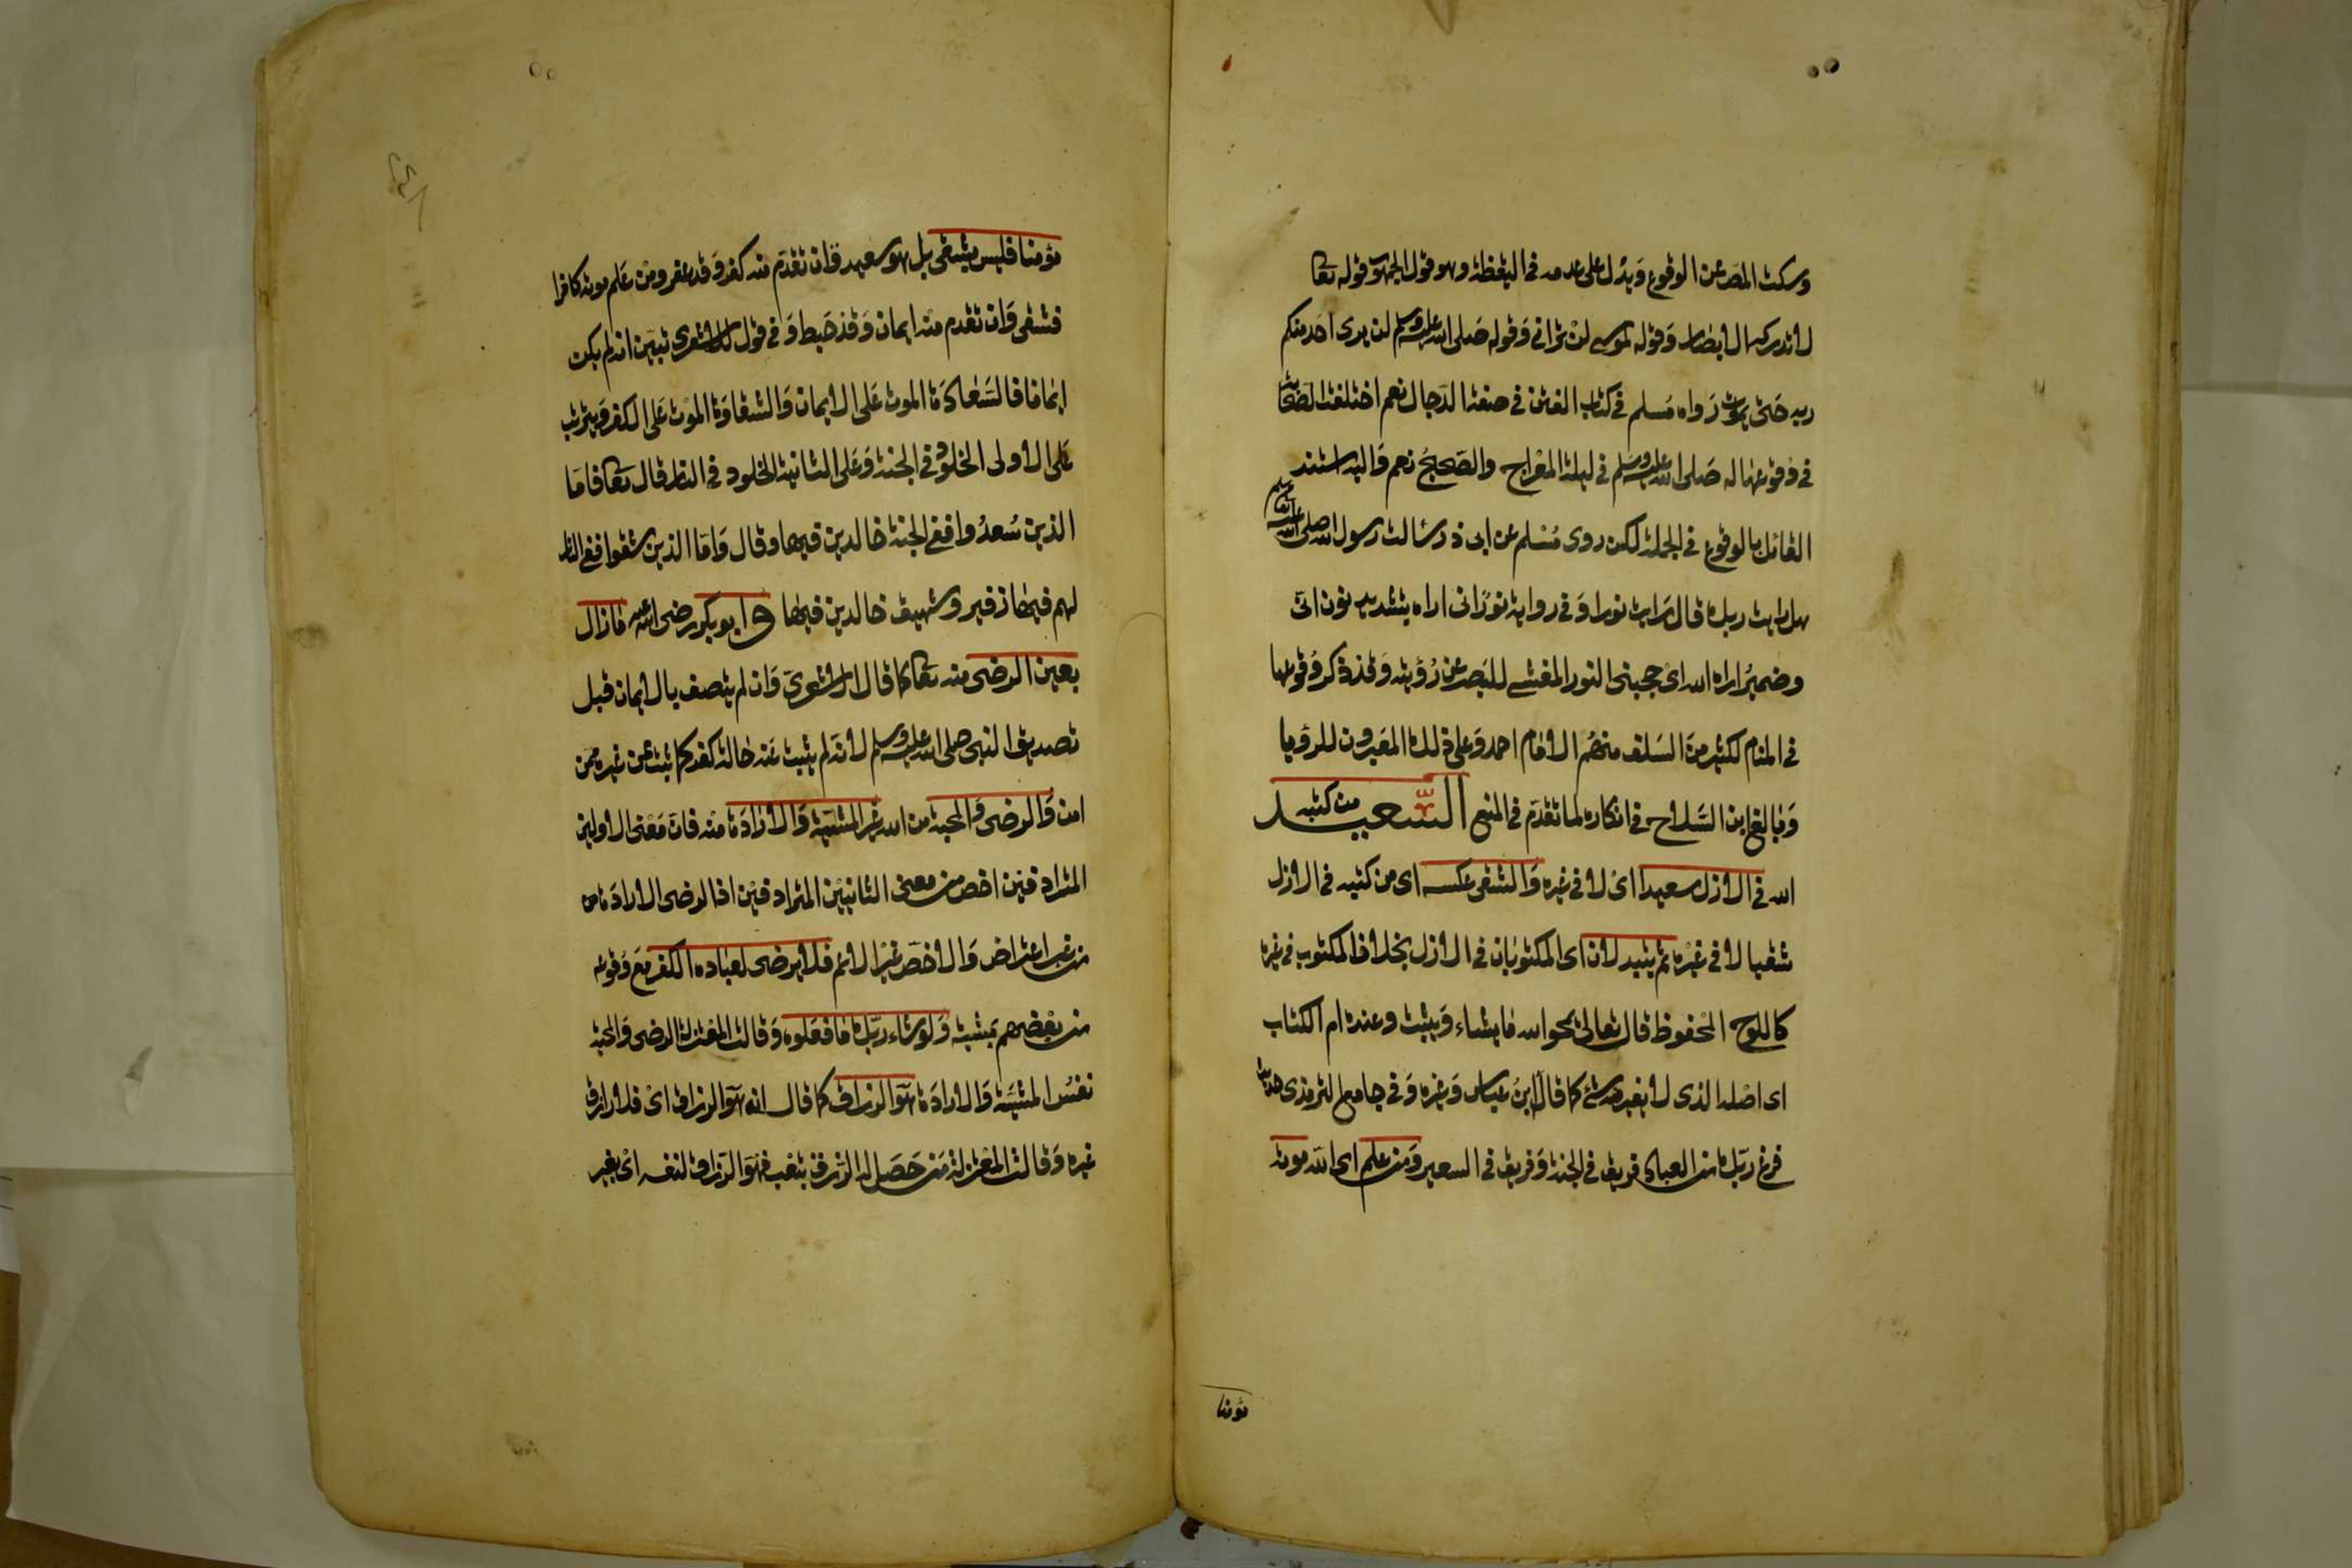 وسكت المص عن الوقوع ويدل على عدمه في اليقظة وهو قول الجمهور قوله تعا
لا تدركه الابصار وقوله لموسى لن تراني وقوله صلى الله عليه وسلم لن يرى احد منكم
ربه حتى يموت رواه مسلم في كتاب الفتن في صفة الدجال نعم اختلفت الصحابة
في وقوعها له صلى الله عليه وسلم في ليلة المعراج والصحيح نعم واليه استند
القائل بالوقوع في الجملة لكن روى مسلم عن ابى ذر سالت رسول الله صلى الله عليه وسلم
هل رايت ربك قال رايت نورا وفي رواية نورانى اراه بتشديد نون انى
وضمير اراه الله اى حجبنى النور المغشى للبصر عن رؤيته وقد ذكر وقوعها
في المنام لكثير من السلف منهم الامام احمد وعلى ذلك المعبرون للرؤيا
وبالغ ابن الصلاح في انكاره لما تقدم في المنع السعيد من كتبه
الله في الازل سعيدا اى لا في غيره والشقى عكسه اى من كتبه في الازل
شقيا لا في غيره ثم يتبدلان اى المكتوبان في الازل بخلاف المكتوب في غيره
كاللوح المحفوظ قال تعالى يمحوا الله ما يشاء ويثبت وعنده ام الكتاب
اى اصله الذى لا يغير منه شئ كما قال ابن عباس وغيره وفي جامع الترمذى حديث
فرغ ربك من العباد فريق في الجنة وفريق في السعير ومن علم اى الله موته
مؤمنا
مؤمنا فليس بشقى بل هو سعيد وان تقدم منه كفر وقد غفر ومن علم موته كافرا
فشقى وان تقدم منه ايمان وقد حبط وفي قول للاشعرى تبين انه لم يكن
ايمانا فالسعادة الموت على الايمان والشقاوة الموت على الكفر ويترتب
على الاولى الخلود في الجنة وعلى الثانية الخلود في النار قال تعا فاما
الذين سعدوا ففى الجنة خالدين فيها وقال واما الذين شقوا ففى النار
لهم فيها زفير وشهيق خالدين فيها وابو بكر رضى الله عنه مازال
بعين الرضى منه تعا كما قال الاشعرى وان لم يتصف بالايمان قبل
تصديق النبى صلى الله عليه وسلم لانه لم يثبت عنه حالة كفر كما ثبت عن غيره ممن
امن والرضى والمحبة من الله غير المشيئة والارادة منه فان معنى الاولين
المترادفين اخص من معنى الثانيين المترادفين اذ الرضى الارادة من
من غير اعتراض والاخص غير الاعم فلا يرضى لعباده الكفر مع وقوعه
من بعضهم بمشيئته ولو شاء ربك ما فعلوه وقالت المعتزلة الرضى والمحبة
نفس المشيئة والارادة هو الرزاق كما قال ان الله هو الرزاق اى فلا رازق
غيره وقالت المعتزلة من حصل له الرزق بتعب فهو الرزاق لنفسه اى بغير